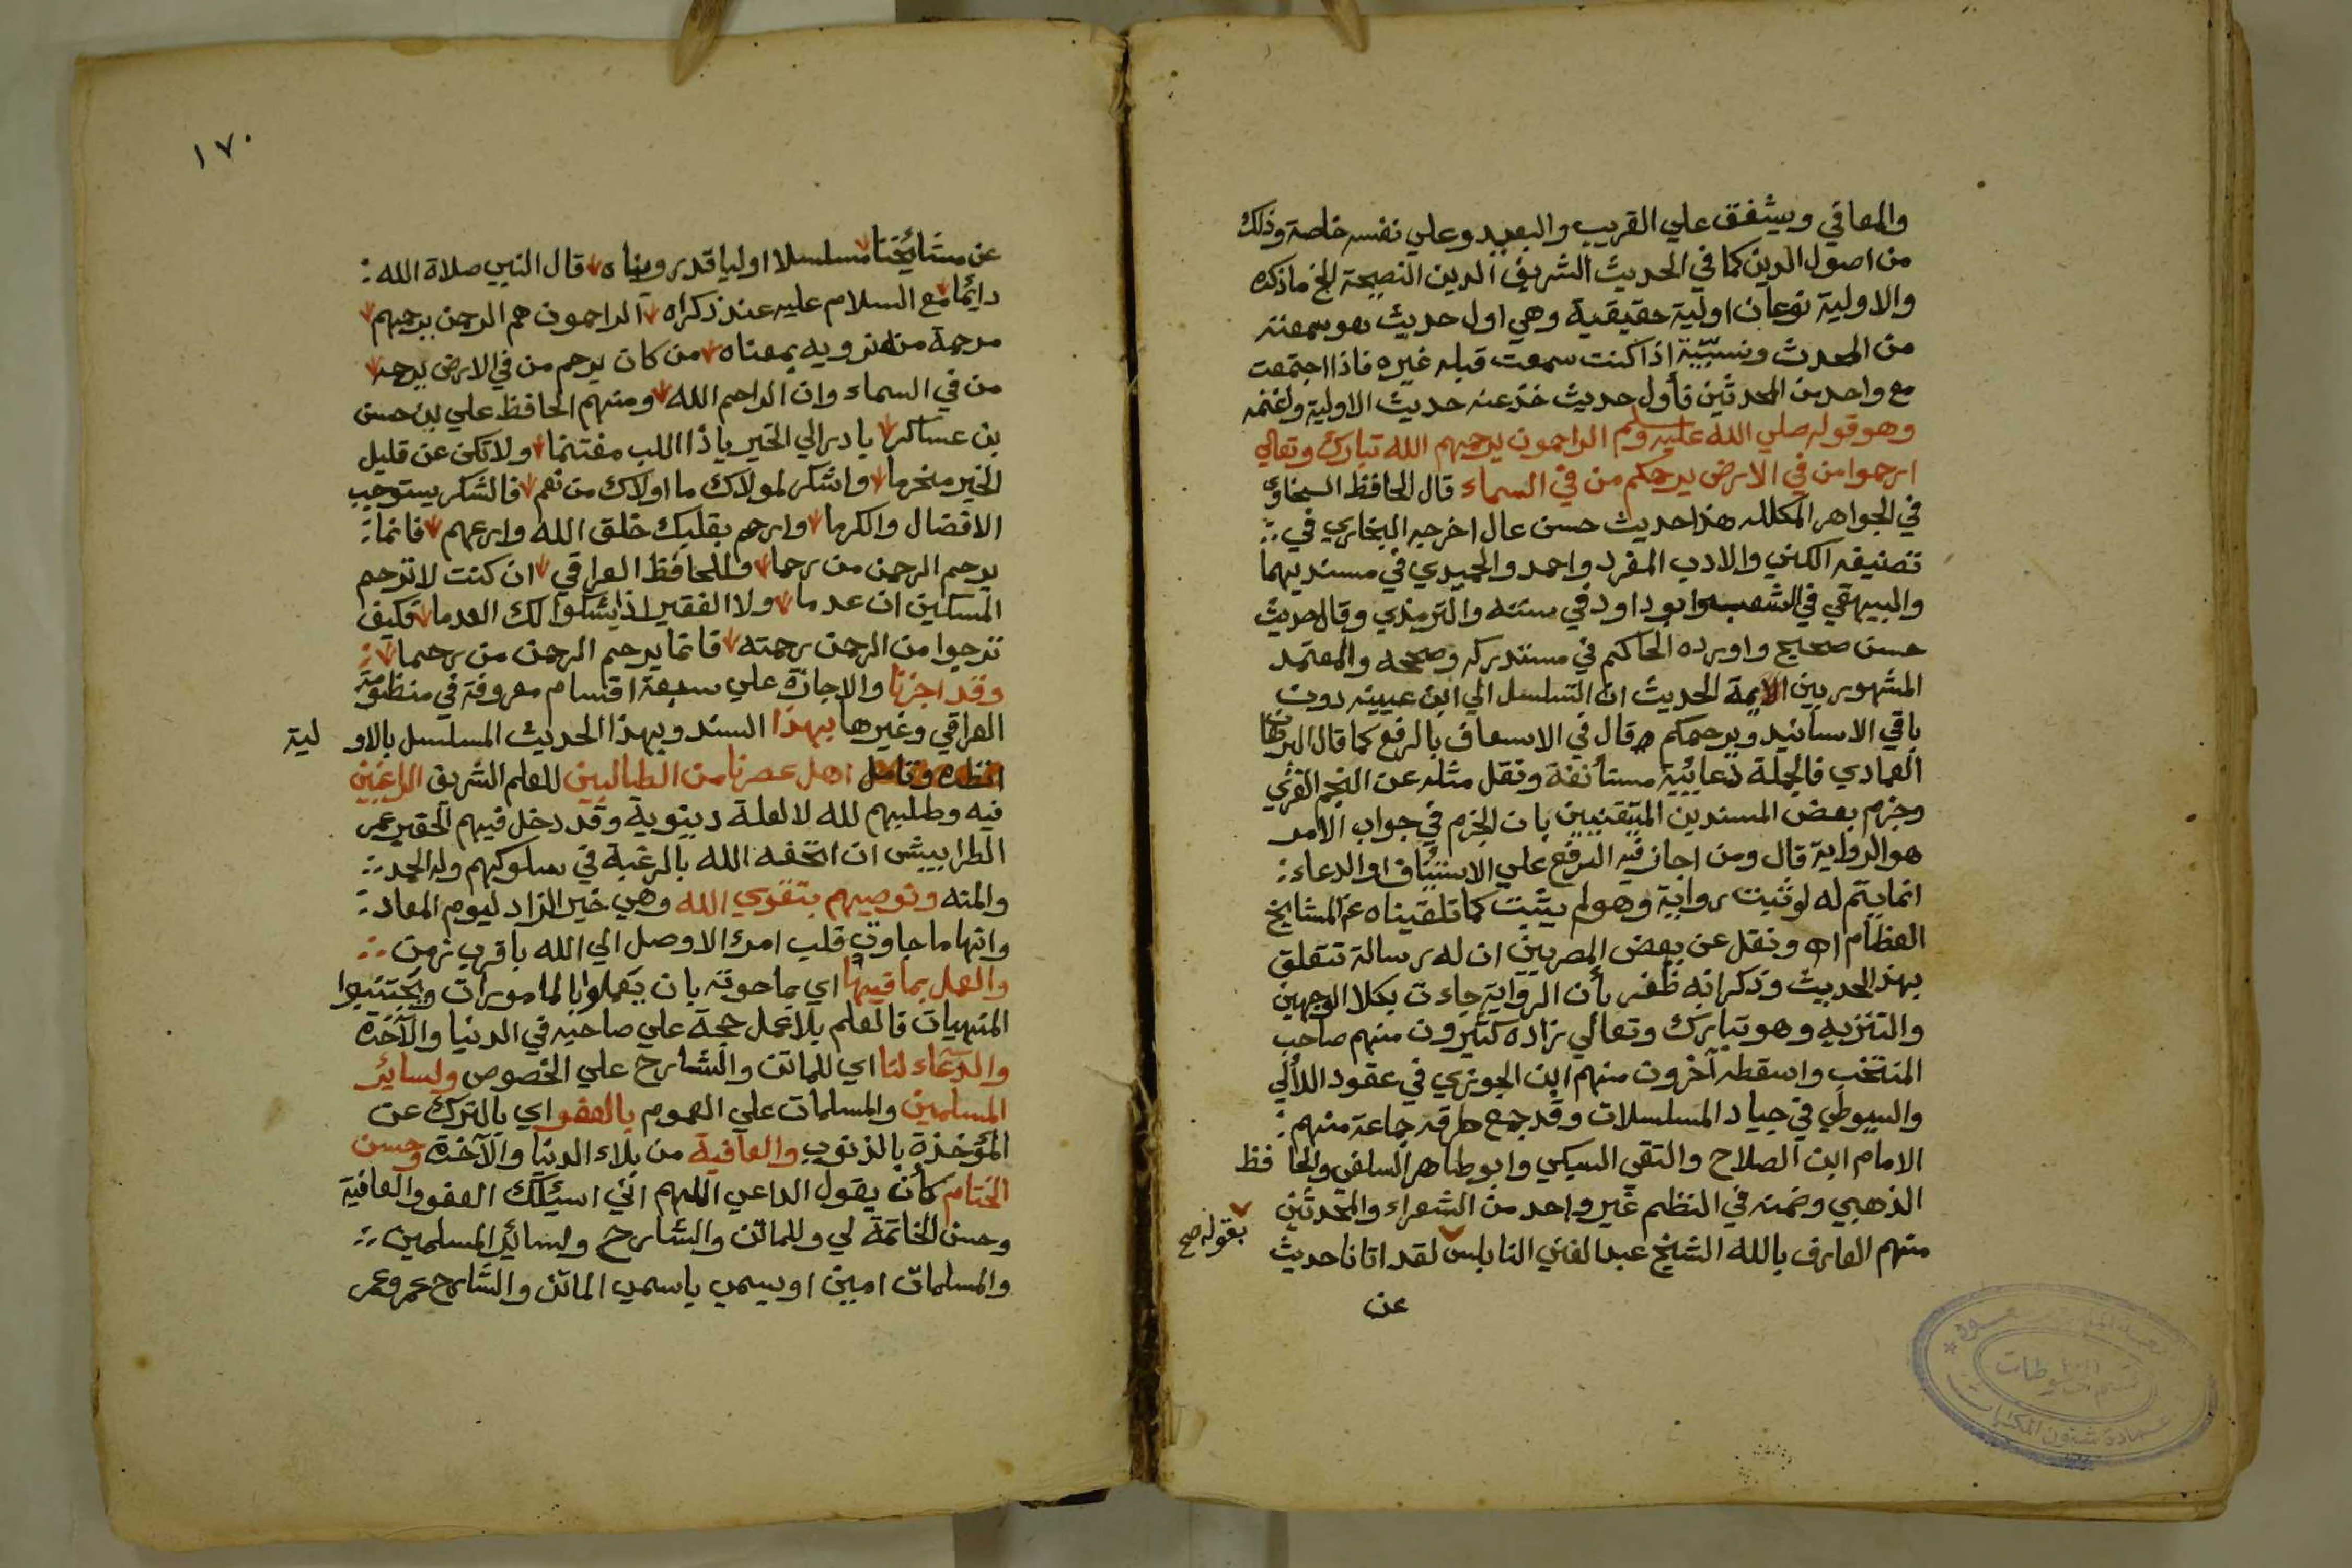 والمعافي ويشفق علي القريب والبعيد وعلي نفسه خاصة وذلك
من اصول الدين كما في الحديث الشريف الدين النصيحة الخ ماذكره
والاولية نوعان اولية حقيقية وهي اول حديث هو سمعته
من المحدث ونسبية اذا كنت سمعت قبله غيره فاذا اجتمعت
مع واحد من المحدثين فأول حديث خذ عنه حديث الاولية واغتنمه
وهو قوله صلي الله عليه وسلم الراحمون يرحمهم الله تبارك وتعالي
ارحموا من في الارض يرحمكم من في السماء قال الحافظ السخاوي
في الجواهر المكلله هذا حديث حسن عال اخرجه البخاري في
تصنيفه الكني والادب المفرد واحمد والحميدي في مسنديهما
والبيهقي في الشعب وابو داود في سننه والترمذي وقال حديث
حسن صحيح واورده الحاكم في مستدركه وصححه والمعتمد
المشهور بين الايمة الحديث ان التسلسل الي ابن عيينه دون
باقي الاسانيد ويرحمكم قال في الاسعاف بالرفع كما قال البرهان
العمادي فالجملة دعائية مستأنفة ونقل مثله عن النجم الغزي
وجزم بعض المسندين المتقنين بان الجزم في جواب الامر
هو الرواية قال ومن اجاز فيه الرفع علي الاستئناف او الدعاء
انما يتم له لو ثبت رواية وهو لم يثبت كما تلقيناه عن المشايخ
العظام اه ونقل عن بعض المصريين ان له رسالة تتعلق
بهذا الحديث وذكر انه ظفر بأن الرواية جاءت بكلا الوجهين
والتنزيه وهو تبارك وتعالي زاده كثيرون منهم صاحب
المنتخب واسقطه آخرون منهم ابن الجوزي في عقود اللآلي
والسيوطي في جياد المسلسلات وقد جمع طرقه جماعة منهم
الامام ابن الصلاح والتقي السبكي وابو طاهر السلفي والحا فظ
الذهبي وضمنه في النظم غير واحد من الشعراء والمحدثين
منهم العارف بالله الشيخ عبد الغني النابلسي لقد اتانا حديث
بقوله صح
عن
عمادة شئون المكتبات
قسم المخطوطات
١٧٠
عن مشائخنا مسلسلا اوليا قد رويناه قال النبي صلاة الله
دائما مع السلام عليه عند ذكراه الراحمون هم الرحمن يرحمهم
مرحمة من نرويه بمعناه من كان يرحم من في الارض يرحمه
من في السماء وان الراحم الله ومنهم الحافظ علي بن حسن
بن عساكر بادر الي الخير ياذا اللب مغتنما ولا تكن عن قليل
الخير منخرما واشكر لمولاك ما اولاك من نعم فالشكر يستوجب
الافضال والكرما وارحم بقلبك خلق الله وارعهم فانما
يرحم الرحمن من رحما وللحافظ العراقي ان كنت لا ترحم
المسكين ان عدما ولا الفقير اذا يشكوا لك العدما فكيف
ترجوا من الرحمن رحمته فانما يرحم الرحمن من رحما
وقد اجزنا والاجازة علي سبعة اقسام معروفة في منظومة
العراقي وغيرها بهذا السند وبهذا الحديث المسلسل بالاو لية
انظره وتامل اهل عصرنا من الطالبين للعلم الشريف الراغبين
فيه وطلبهم لله لا لعلة دنيوية وقد دخل فيهم الحقير عمر
الطرابيشي ان اتحفه الله بالرغبة في سلوكهم وله الحمد
والمنه ونوصيهم بتقوي الله وهي خير الزاد ليوم المعاد
وانها ما جاوت قلب امرء الا وصل الي الله باقرب زمن
والعمل بما فيها اي بما حوته بان يعملوا بالمامورات ويجتنبوا
المنهيات فالعلم بلا عمل حجة علي صاحبه في الدنيا والآخرة
والدعاء لنا اي للماتن والشارح علي الخصوص ولسائر
المسلمين والمسلمات علي العموم بالعفو اي بالترك عن
المؤخذة بالذنوب والعافية من بلاء الدنيا والآخرة وحسن
الختام كأن يقول الداعي اللهم اني اسئلك العفو والعافية
وحسن الخاتمة لي وللماتن والشارح ولسائر المسلمين
والمسلمات امين او يسمي باسمي الماتن والشارح عمر وعمر